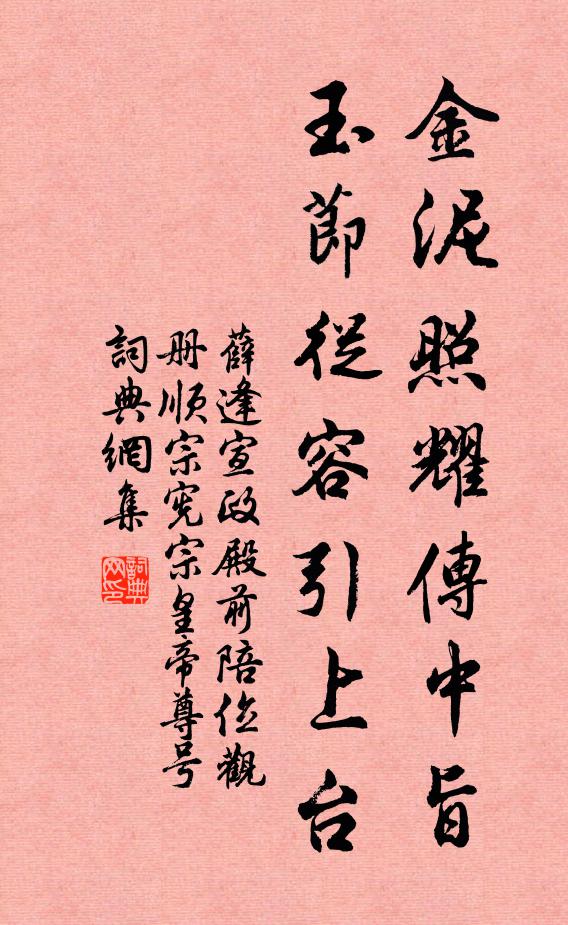 金泥照耀傳中旨
玉節從容引上台
薛逢宣政殿前陪位觀
册順宗宪宗皇帝尊号
詞典網集
詞典網印